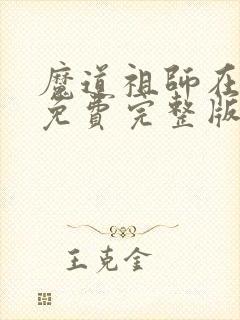 魔道祖師在
免費完整版
王克金